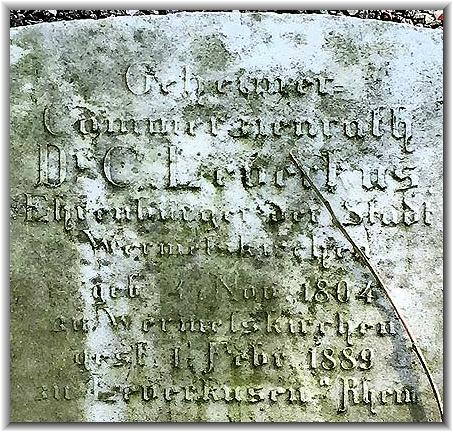 Geheimer-
Commerzienrath
Dr C. Leverkus
Ehrenbürger der Stadt
Wermelskirchen
geb. 4. Nov. 1804
zu Wermelskirchen
gest. 1. Febr. 1889
zu Leverkusen a/Rhein